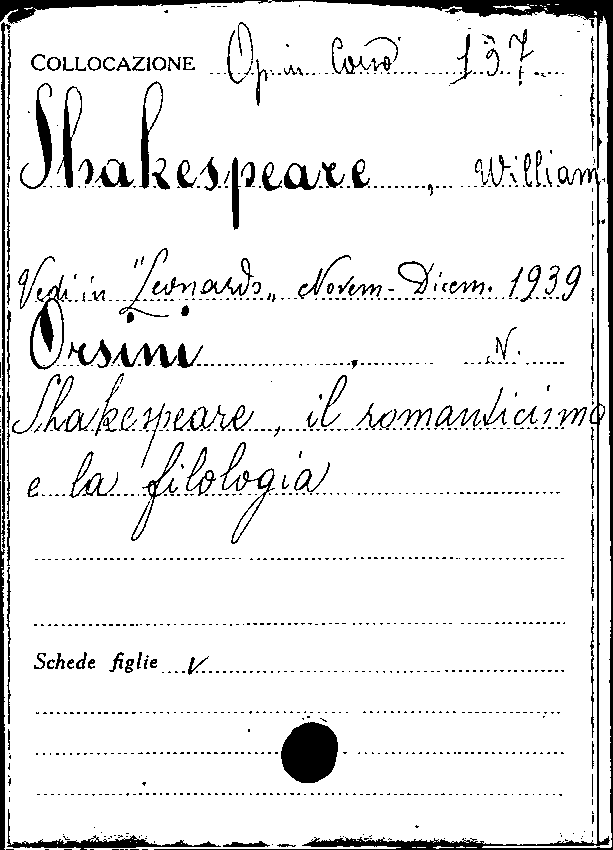 COLLOCAZIONE Op. in Corso 137.
Shakespeare, William
Vedi in "Leonardo„ Novem-Dicem. 1939
Orsini, N.
Shakespeare, il romanticismo
e la filologia
Schede figlie V